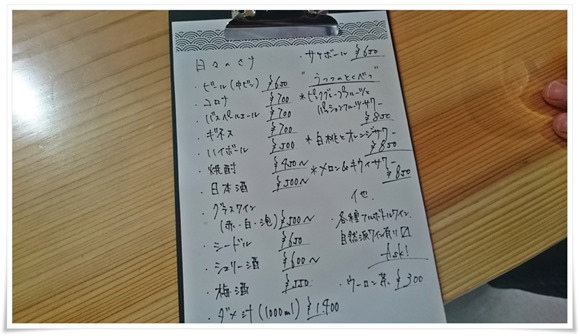 日々のさけ
・ビール(中ビン) ¥650
・コロナ ¥700
・バスペールエール ¥700
・ギネス ¥700
・ハイボール ¥500
・焼酎 ¥450〜
・日本酒 ¥500〜
・グラスワイン
(赤・白・泡) ¥500〜
・シードル ¥650
・シェリー酒 ¥600〜
・梅酒 ¥550
・ダメ汁(1000ml) ¥1,400
・サケボール ¥650
"うつつのとくべつ"
*ピンクグレープフルーツと
パッションフルーツサワー
¥850
*白桃とオレンジサワー
¥850
*メロン&キウイサワー
¥850
他.
・各種フルボトルワイン,
自然派ワイン有り〼
Ask!
・ウーロン茶 ¥300